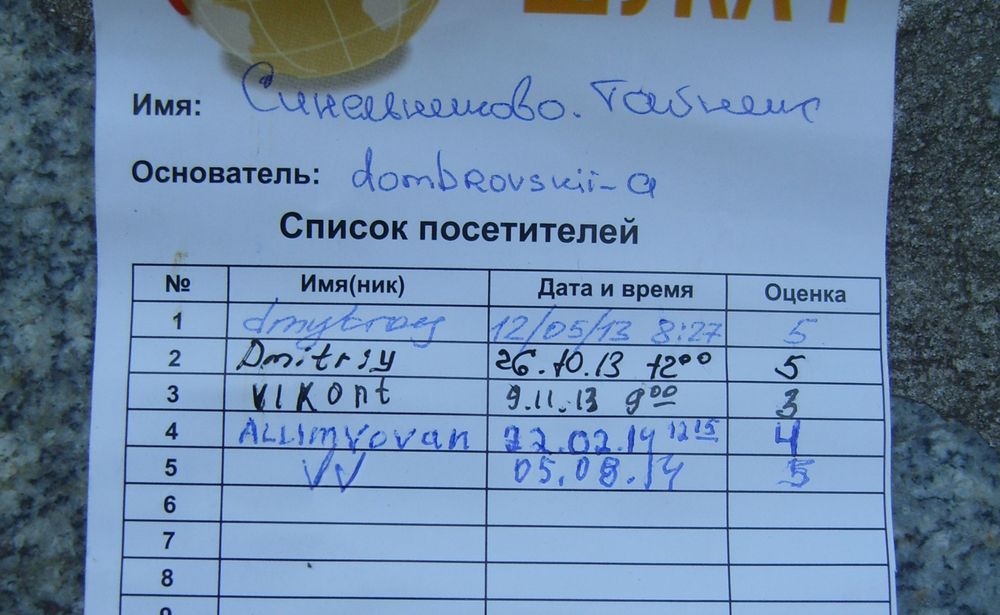 ШУКАЧ
Имя: Синельниково. Тайник
Основатель: dombrovskii-a
Список посетителей
№ Имя(ник) Дата и время Оценка
1 dmytroy 12/05/13 8:27 5
2 Dmitrsy 26.10.13 12⁰⁰ 5
3 VIKont 9.11.13 9⁰⁰ 3
4 ALLIMVovan 22.02.14 12¹⁵ 4
5 VV 05.08.14 5
6
7
8
9